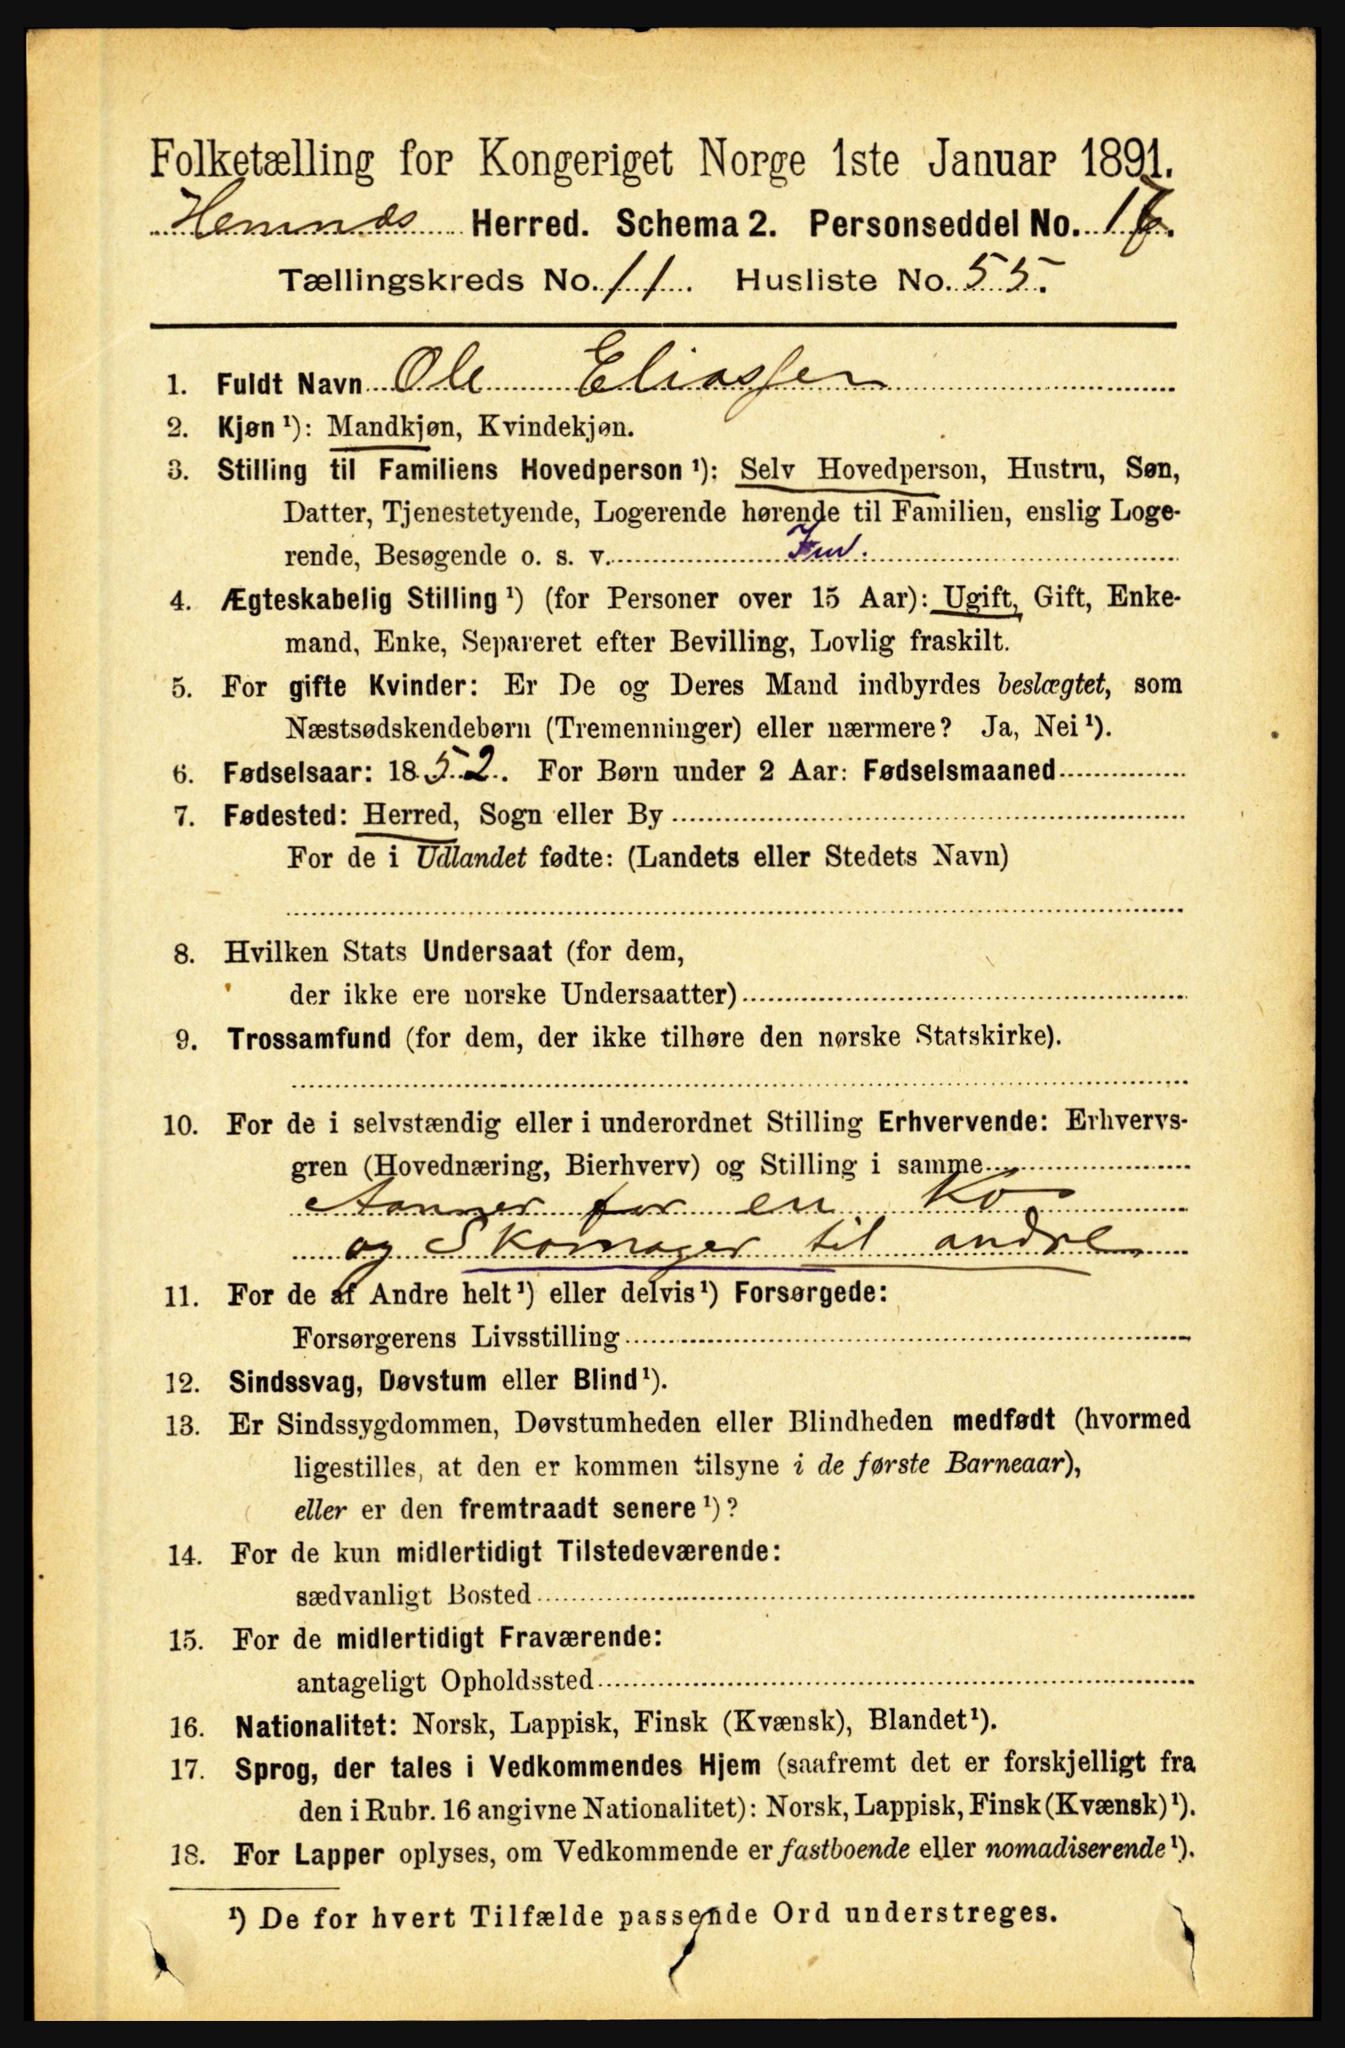 Folketælling for Kongeriget Norge 1ste Januar 1891.
Hemnæs Herred. Schema 2. Personseddel No. 17.
Tællingskreds No. 11. Husliste No. 55.
1. Fuldt Navn Ole Eliassen
2. Kjøn ¹): Mandkjøn, Kvindekjøn.
3. Stilling til Familiens Hovedperson ¹): Selv Hovedperson, Hustru, Søn,
Datter, Tjenestetyende, Logerende hørende til Familien, enslig Loge-
rende, Besøgende o. s. v.
4. Ægteskabelig Stilling ¹) (for Personer over 15 Aar): Ugift, Gift, Enke-
mand, Enke, Separeret efter Bevilling, Lovlig fraskilt.
5. For gifte Kvinder: Er De og Deres Mand indbyrdes beslægtet, som
Næstsødskendebørn (Tremenninger) eller nærmere? Ja, Nei ¹).
6. Fødselsaar: 1852. For Børn under 2 Aar: Fødselsmaaned
7. Fødested: Herred, Sogn eller By
For de i Udlandet fødte: (Landets eller Stedets Navn)
8. Hvilken Stats Undersaat (for dem,
der ikke ere norske Undersaatter)
9. Trossamfund (for dem, der ikke tilhøre den norske Statskirke).
10. For de i selvstændig eller i underordnet Stilling Erhvervende: Erhvervs-
gren (Hovednæring, Bierhverv) og Stilling i samme
Aanner for en Ko
og Skomager til andre
11. For de af Andre helt ¹) eller delvis ¹) Forsørgede:
Forsørgerens Livsstilling
12. Sindssvag, Døvstum eller Blind ¹).
13. Er Sindssygdommen, Døvstumheden eller Blindheden medfødt (hvormed
ligestilles, at den er kommen tilsyne i de første Barneaar),
eller er den fremtraadt senere ¹)?
14. For de kun midlertidigt Tilstedeværende:
sædvanligt Bosted
15. For de midlertidigt Fraværende:
antageligt Opholdssted
16. Nationalitet: Norsk, Lappisk, Finsk (Kvænsk), Blandet ¹).
17. Sprog, der tales i Vedkommendes Hjem (saafremt det er forskjelligt fra
den i Rubr. 16 angivne Nationalitet): Norsk, Lappisk, Finsk (Kvænsk) ¹).
18. For Lapper oplyses, om Vedkommende er fastboende eller nomadiserende ¹).
¹) De for hvert Tilfælde passende Ord understreges.